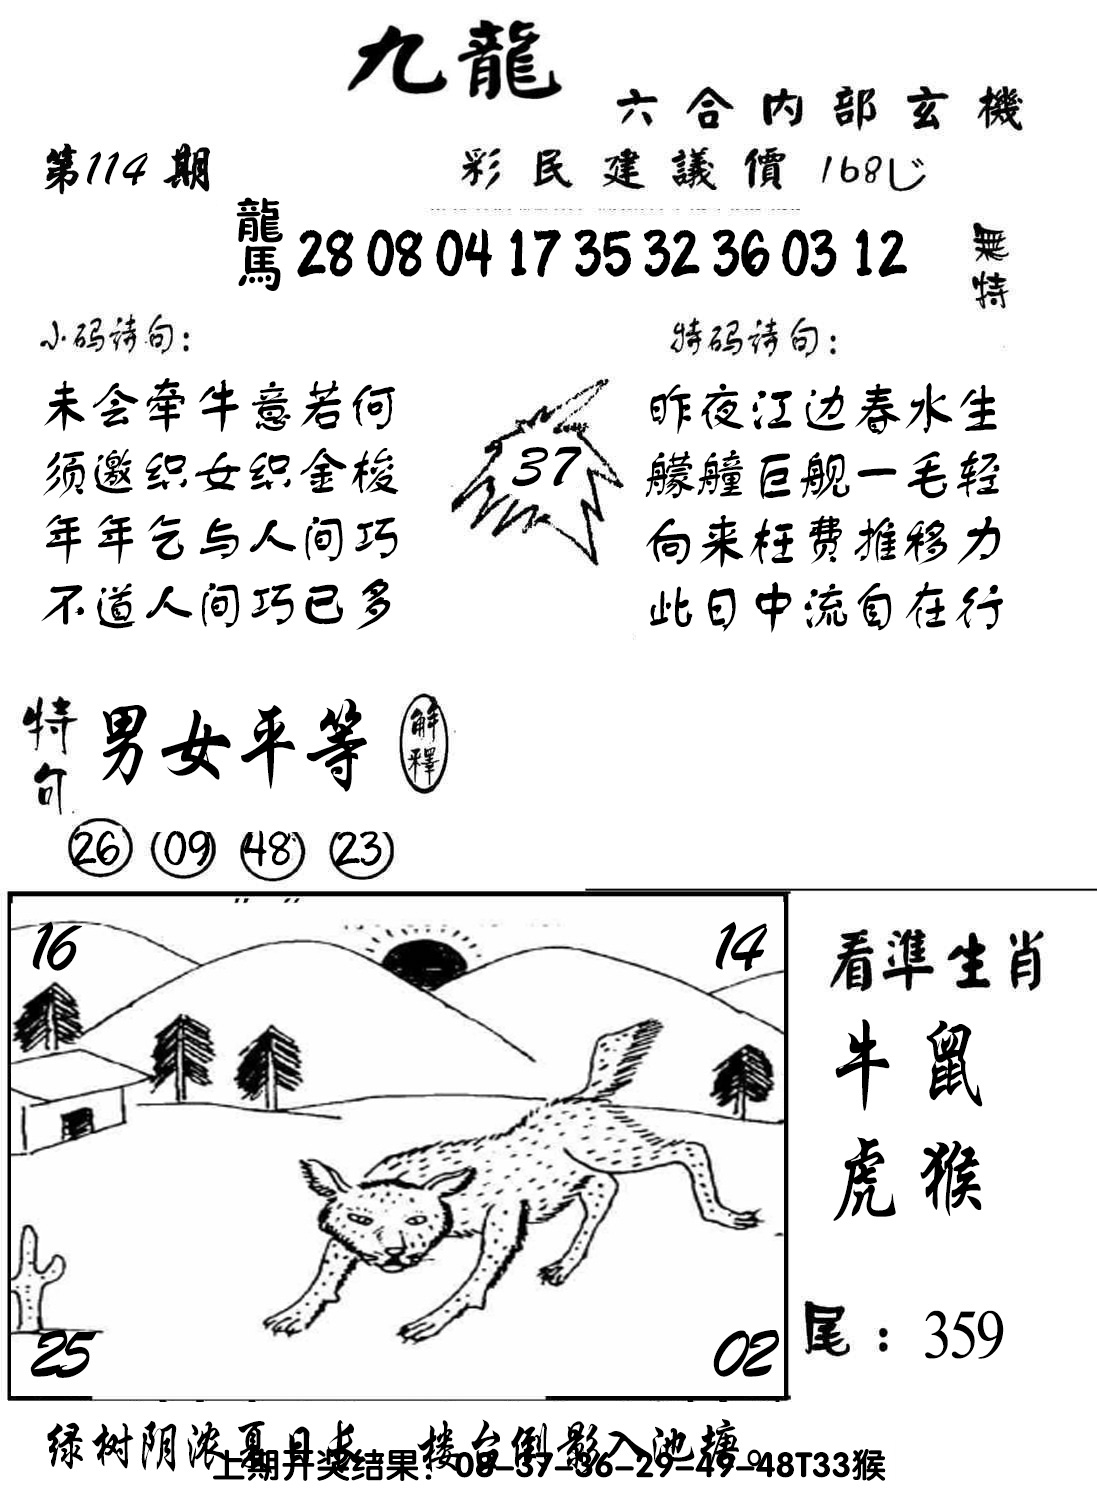 九龍
六合内部玄機
第114期
彩民建議價168
龍馬 28 08 04 17 35 32 36 03 12
無特
小码诗句：
未会牵牛意若何
须邀织女织金梭
年年乞与人间巧
不道人间巧已多
37
特码诗句：
昨夜江边春水生
艨艟巨舰一毛轻
向来枉费推移力
此日中流自在行
特句 男女平等 解釋
26 09 48 23
16 14
25 02
看準生肖
牛 鼠
虎 猴
尾：359
绿树阴浓夏日长 楼台倒影入池塘。
上期开奖结果：08-37-36-29-49-48T33猴